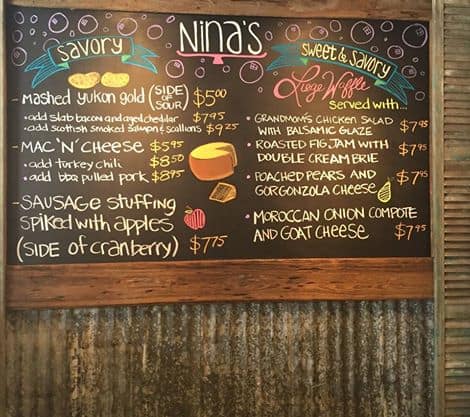 Nina's
Savory
- Mashed Yukon Gold (Side of Sour) $5.00
• add slab bacon and aged cheddar $7.95
• add scottish smoked salmon & scallions $9.25
- Mac 'N' Cheese $5.95
• add turkey chili $8.50
• add bbq pulled pork $8.95
- Sausage Stuffing
Spiked with Apples
(Side of Cranberry) $7.75
Sweet & Savory
Liege Waffle
Served with...
• Grandmom's Chicken Salad
with Balsamic Glaze $7.95
• Roasted Fig Jam with
Double Cream Brie $7.95
• Poached Pears and
Gorgonzola Cheese $7.95
• Moroccan Onion Compote
and Goat Cheese $7.95